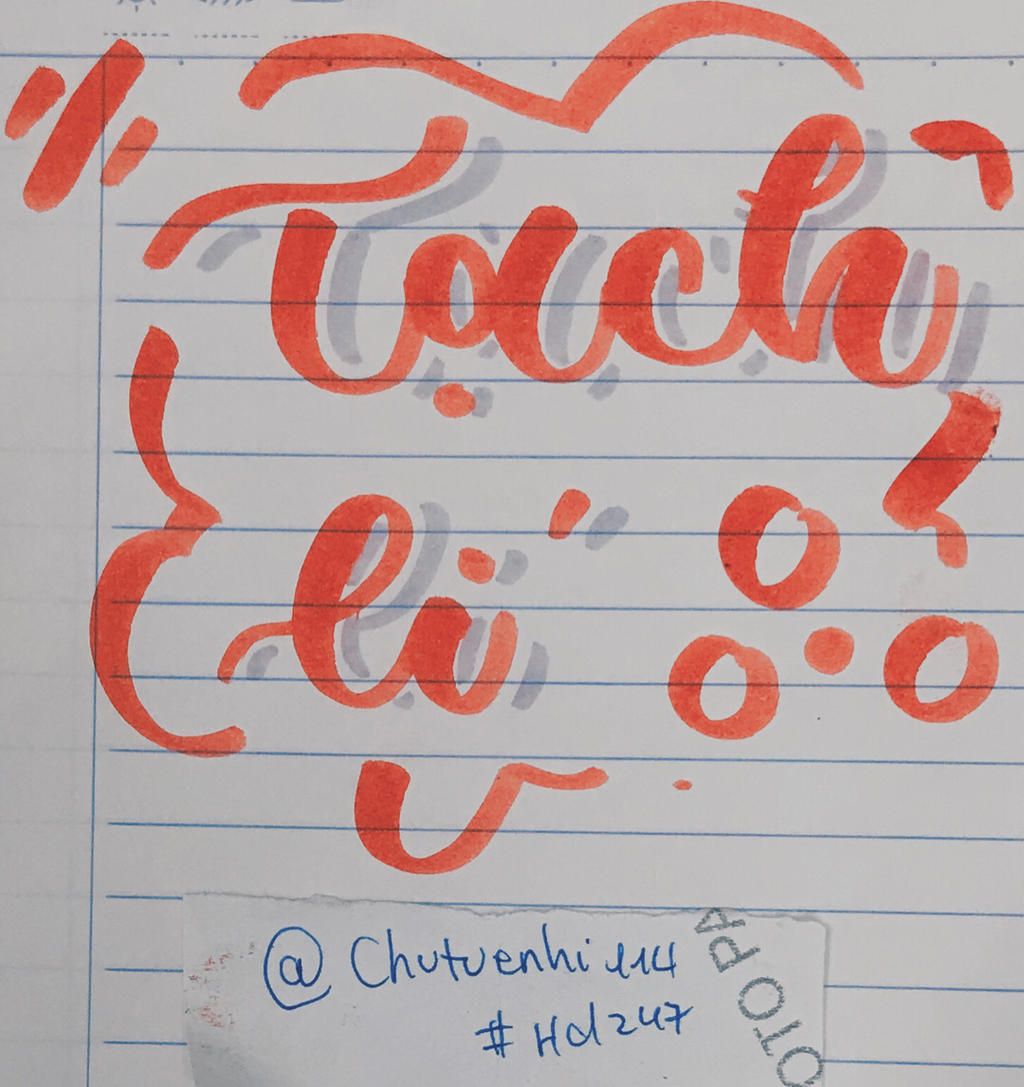 Tạch
lí
@Chutuenhi114
#Hd247
OTO PA